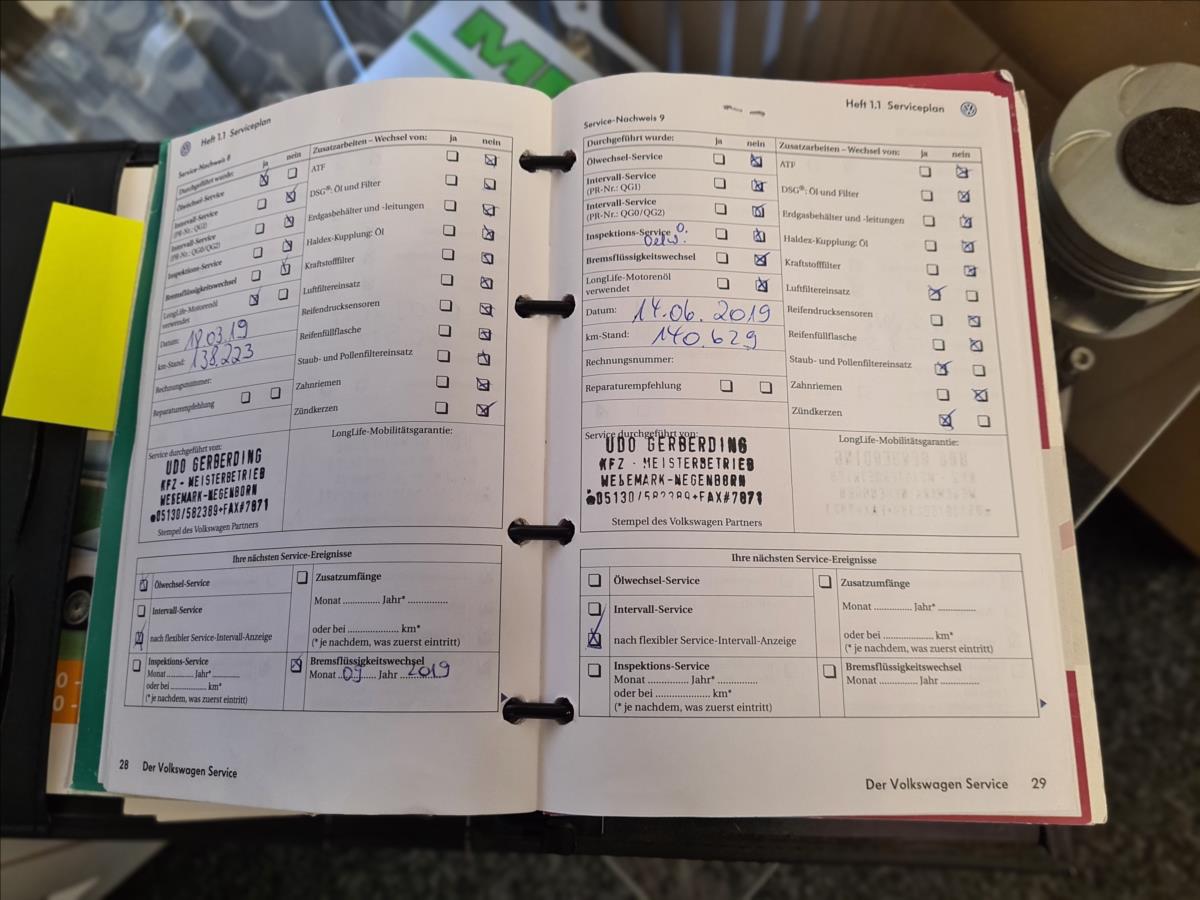 Heft 1.1 Serviceplan
Service-Nachweis 8
Durchgeführt wurde: ja nein
Ölwechsel-Service
Intervall-Service
(PR-Nr.: QG1)
Intervall-Service
(PR-Nr.: QG0/QG2)
Inspektions-Service
Bremsflüssigkeitswechsel
LongLife-Motorenöl
verwendet
Datum: 18.03.19
km-Stand: 138.223
Rechnungsnummer:
Reparaturempfehlung
Zusatzarbeiten – Wechsel von: ja nein
ATF
DSG®: Öl und Filter
Erdgasbehälter und -leitungen
Haldex-Kupplung: Öl
Kraftstofffilter
Luftfiltereinsatz
Reifendrucksensoren
Reifenfüllflasche
Staub- und Pollenfiltereinsatz
Zahnriemen
Zündkerzen
Service durchgeführt von:
UDO GERBERDING
KFZ - MEISTERBETRIEB
WEDEMARK-NEGENBORN
☎05130/582389+FAX#7871
Stempel des Volkswagen Partners
LongLife-Mobilitätsgarantie:
Ihre nächsten Service-Ereignisse
Ölwechsel-Service
Intervall-Service
nach flexibler Service-Intervall-Anzeige
Inspektions-Service
Monat ............ Jahr* ............
oder bei ............ km*
(* je nachdem, was zuerst eintritt)
Zusatzumfänge
Monat ............ Jahr* ............
oder bei ............ km*
(* je nachdem, was zuerst eintritt)
Bremsflüssigkeitswechsel
Monat 09 Jahr 2019
28 Der Volkswagen Service
Heft 1.1 Serviceplan
Service-Nachweis 9
Durchgeführt wurde: ja nein
Ölwechsel-Service
Intervall-Service
(PR-Nr.: QG1)
Intervall-Service
(PR-Nr.: QG0/QG2)
Inspektions-Service
Bremsflüssigkeitswechsel
LongLife-Motorenöl
verwendet
Datum: 14.06.2019
km-Stand: 140.629
Rechnungsnummer:
Reparaturempfehlung
Zusatzarbeiten – Wechsel von: ja nein
ATF
DSG®: Öl und Filter
Erdgasbehälter und -leitungen
Haldex-Kupplung: Öl
Kraftstofffilter
Luftfiltereinsatz
Reifendrucksensoren
Reifenfüllflasche
Staub- und Pollenfiltereinsatz
Zahnriemen
Zündkerzen
Service durchgeführt von:
UDO GERBERDING
KFZ - MEISTERBETRIEB
WEDEMARK-NEGENBORN
☎05130/582389+FAX#7871
Stempel des Volkswagen Partners
LongLife-Mobilitätsgarantie:
Ihre nächsten Service-Ereignisse
Ölwechsel-Service
Intervall-Service
nach flexibler Service-Intervall-Anzeige
Inspektions-Service
Monat ............ Jahr* ............
oder bei ............ km*
(* je nachdem, was zuerst eintritt)
Zusatzumfänge
Monat ............ Jahr* ............
oder bei ............ km*
(* je nachdem, was zuerst eintritt)
Bremsflüssigkeitswechsel
Monat ............ Jahr ............
Der Volkswagen Service 29